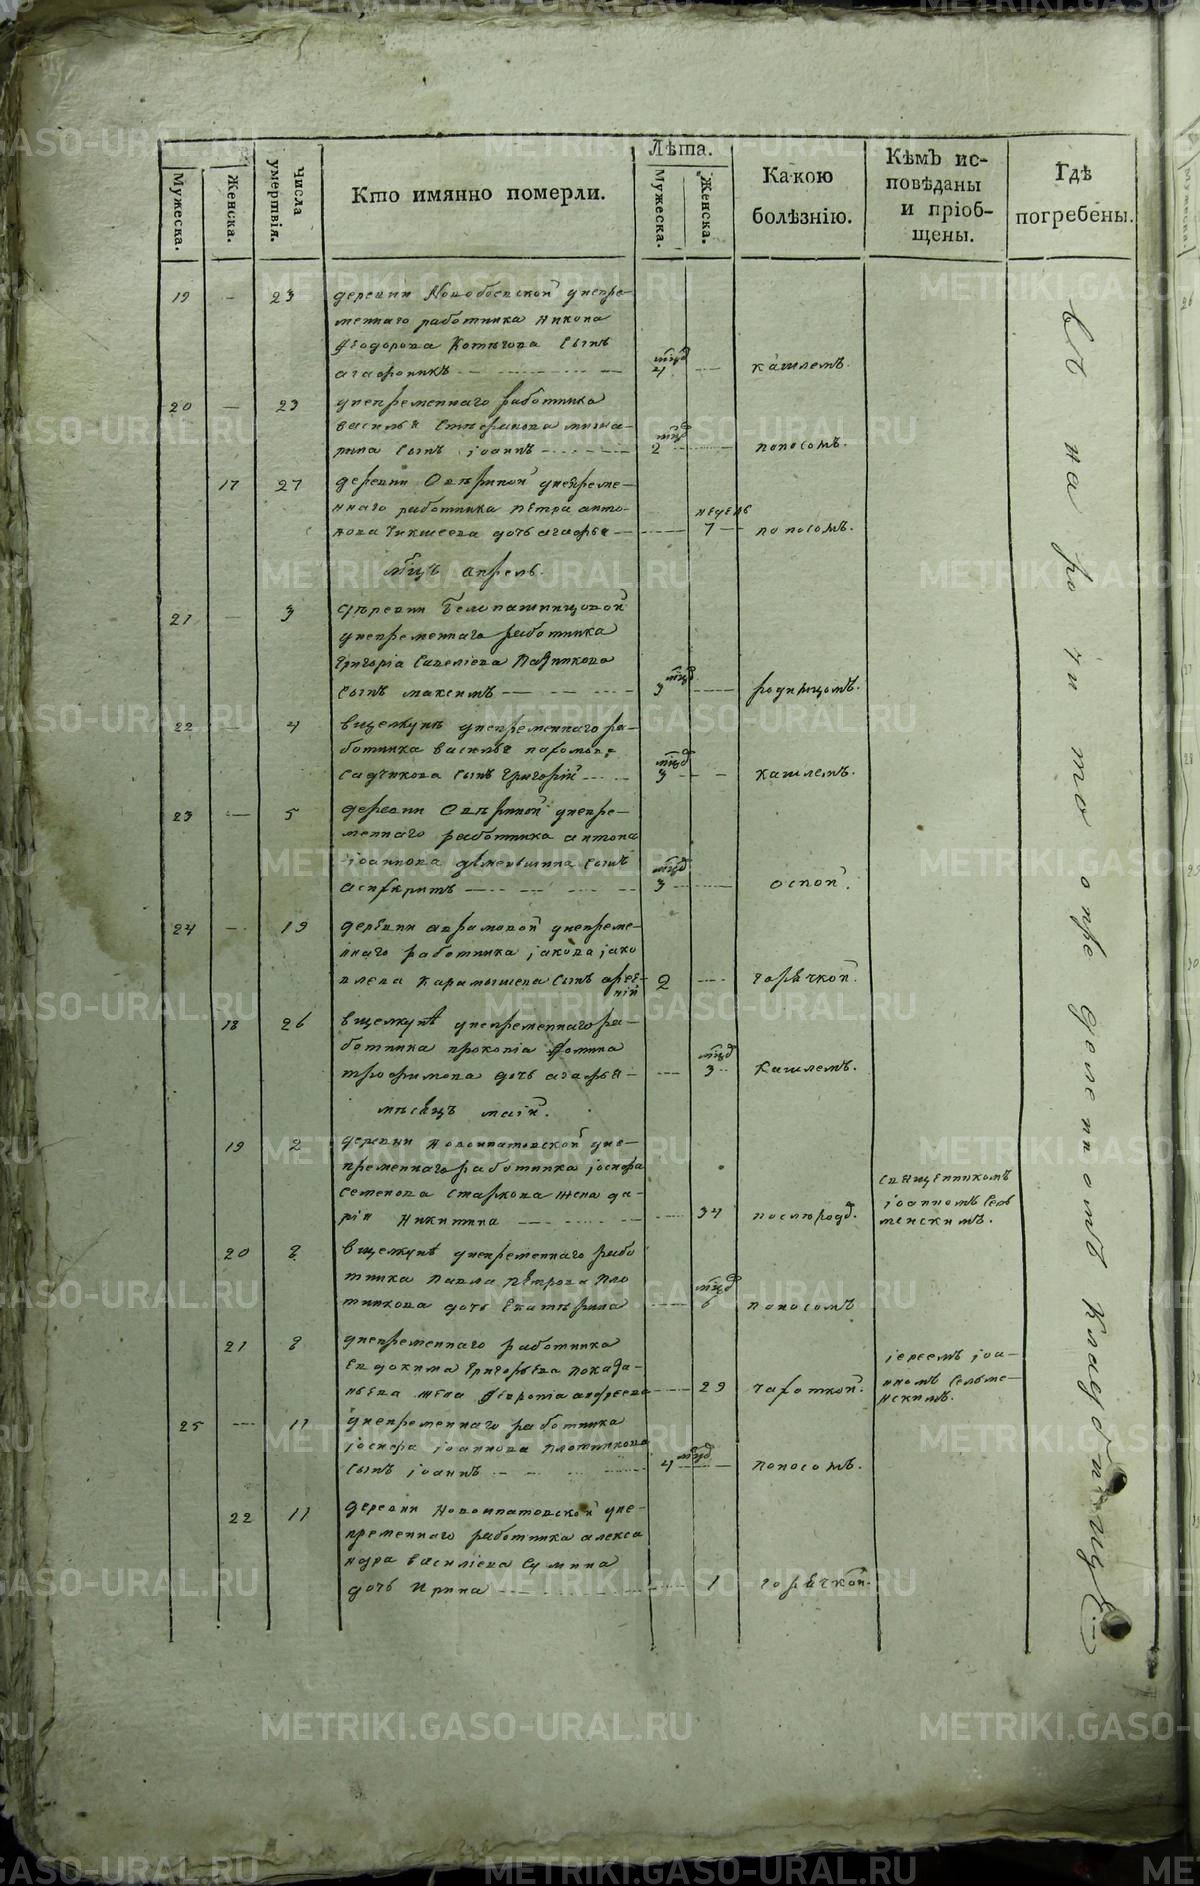 Мужеска.
Женска.
Числа умертвія.
Кто имянно померли.
Лѣта.
Мужеска.
Женска.
Какою болѣзнію.
Кѣмъ исповѣданы и пріобщены.
Гдѣ погребены.
19 — 23 деревни Новобоевской унепре-
меннаго работника Никона
Ѳеодорова сынъ
агафоникъ мцд 4 — кашлемъ.
20 — 23 унепременнаго работника
василья
сынъ іоаннъ мцд 2 поносомъ.
17 27 деревни унепреме-
ннаго работника петра анто-
нова дочь агафья недель 7 — поносомъ.
мцъ апрель.
21 — 3 деревни Белопашинцовой
унепременнаго работника
григорія савеліева
сынъ максимъ мцд 3 — родимцомъ.
22 — 4 вщелкунѣ унепременнаго ра-
ботника василья пахомова
садчикова сынъ григорій мцд 3 — кашлемъ.
23 — 5 деревни унепре-
меннаго работника антона
іоаннова сынъ
асинкритъ мцд 3 — оспой.
24 — 19 деревни аврамовой унепреме-
ннаго работника іакова іако
влева карамышева сынъ арсе-
ній 2 — горячкой.
18 26 вщелкунѣ унепременнаго ра-
ботника прокопія фомина
трофимова дочь агафья — мцд 3 кашлемъ.
мѣсецъ маій.
19 2 деревни новоипатовской уне-
пременнаго работника іосифа
семенова старкова жена да-
рія никитина — 34 послѣродд. священникомъ
іоанномъ Сель
менскимъ.
20 8 вщелкунѣ унепременнаго рабо
тника павла петрова пло
тникова дочь екатерина мцд 6 поносомъ
21 8 унепременнаго работника
евдокима григорьева
жена андреева — 29 чахоткой. іереемъ іоа-
нномъ Сельме-
нскимъ.
25 — 11 унепременнаго работника
іосифа іоаннова плотникова
сынъ іоаннъ мцд 4 — поносомъ.
22 11 деревни новоипатовской уне-
пременнаго работника алекса
ндра василіева сумина
дочь ирина — 1 горячкой.
METRIKI.GASO-URAL.RU